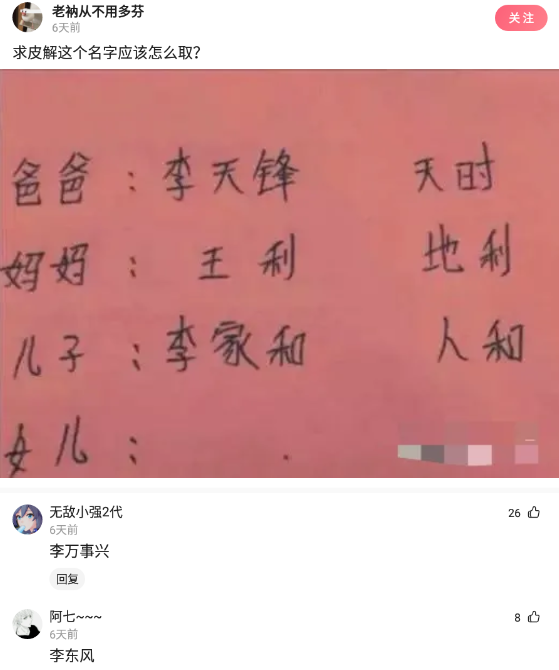 老衲从不用多芬
6天前
关注
求皮解这个名字应该怎么取?
爸爸：李天锋 天时
妈妈：王利 地利
儿子：李家和 人和
女儿：
无敌小强2代
26
6天前
李万事兴
回复
阿七~~~
8
6天前
李东风